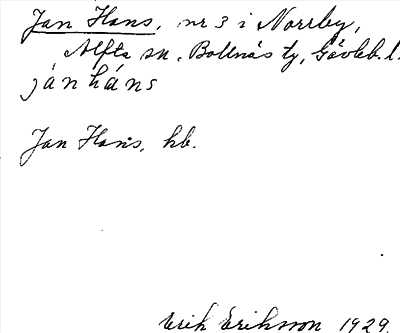 Jan Hans, nr 3 i Norrby,
Alfta sn, Bollnäs tg, Gävleb. l.
jánháns
Jan Hans, hb.
Erik Eriksson 1929.